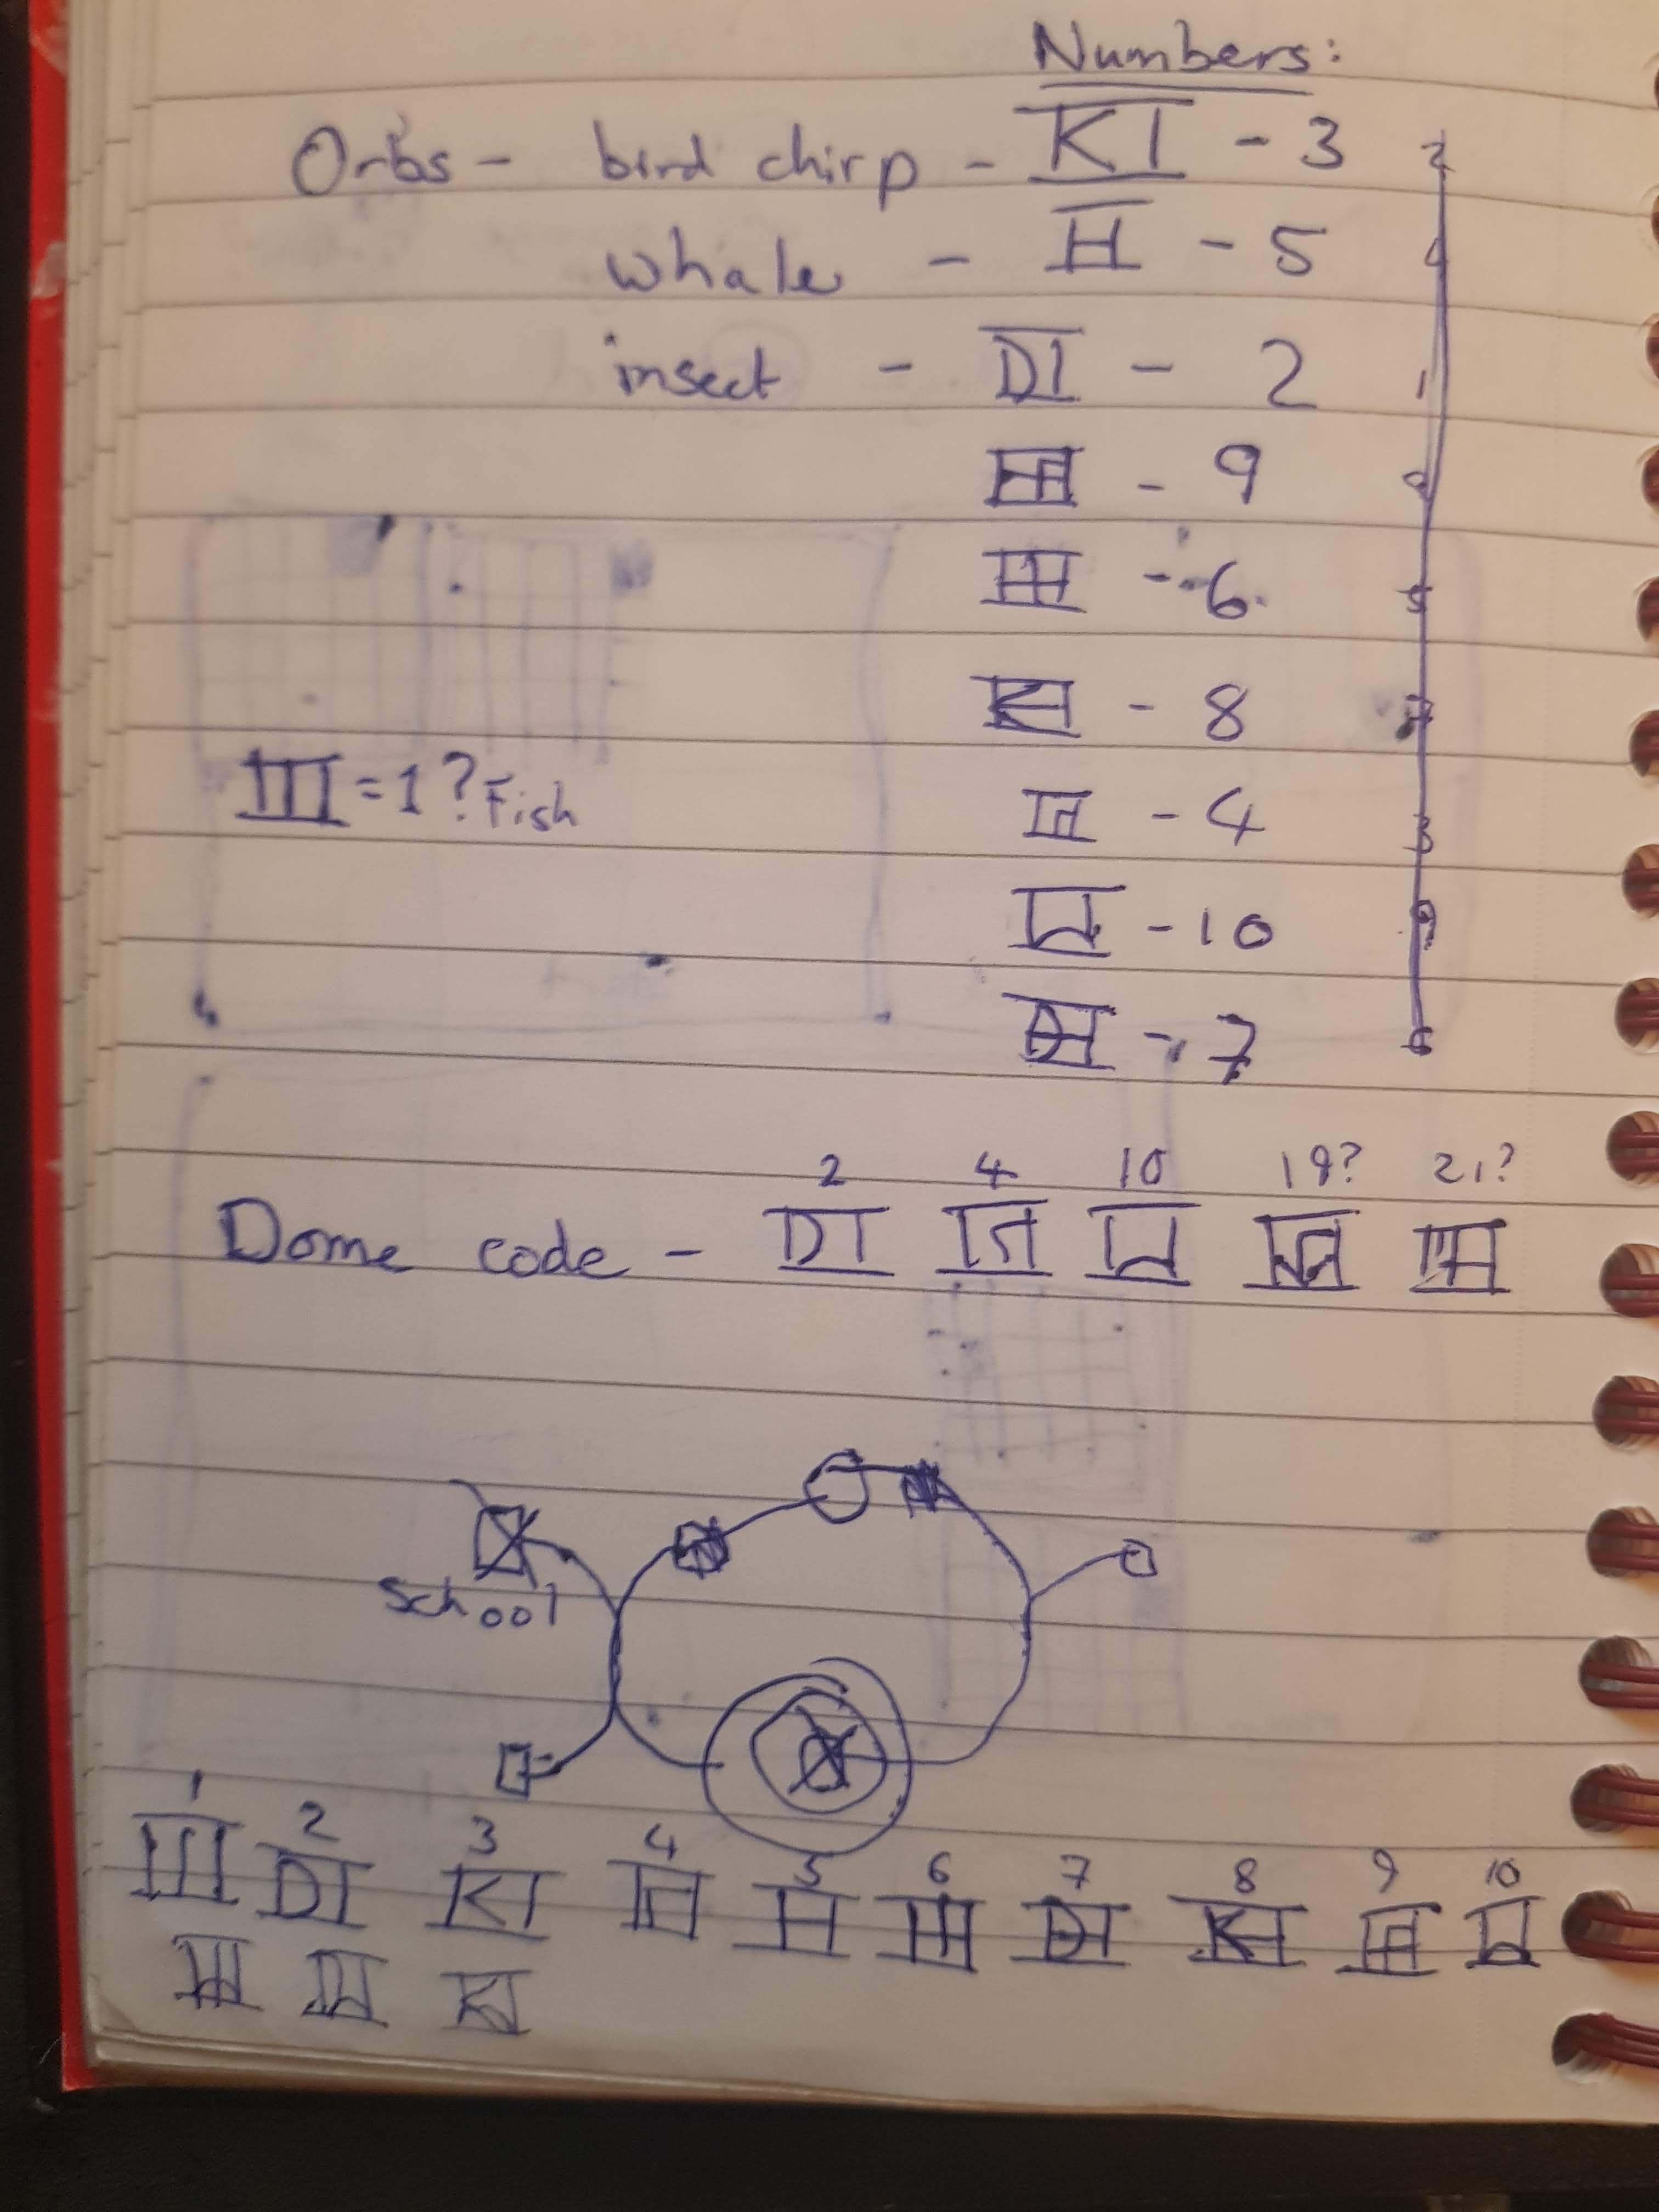 Numbers:
Orbs - bird chirp - - 3
whale - - 5
insect - - 2
- 9
- 6
- 8
= 1? Fish
- 4
- 10
- 7
2 4 10 19? 21?
Dome code -
School
1 2 3 4 5 6 7 8 9 10